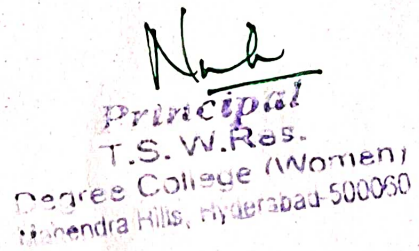 Principal
T.S. W.Res.
Degree College (Women)
Mahendra Hills, Hyderabad-500060